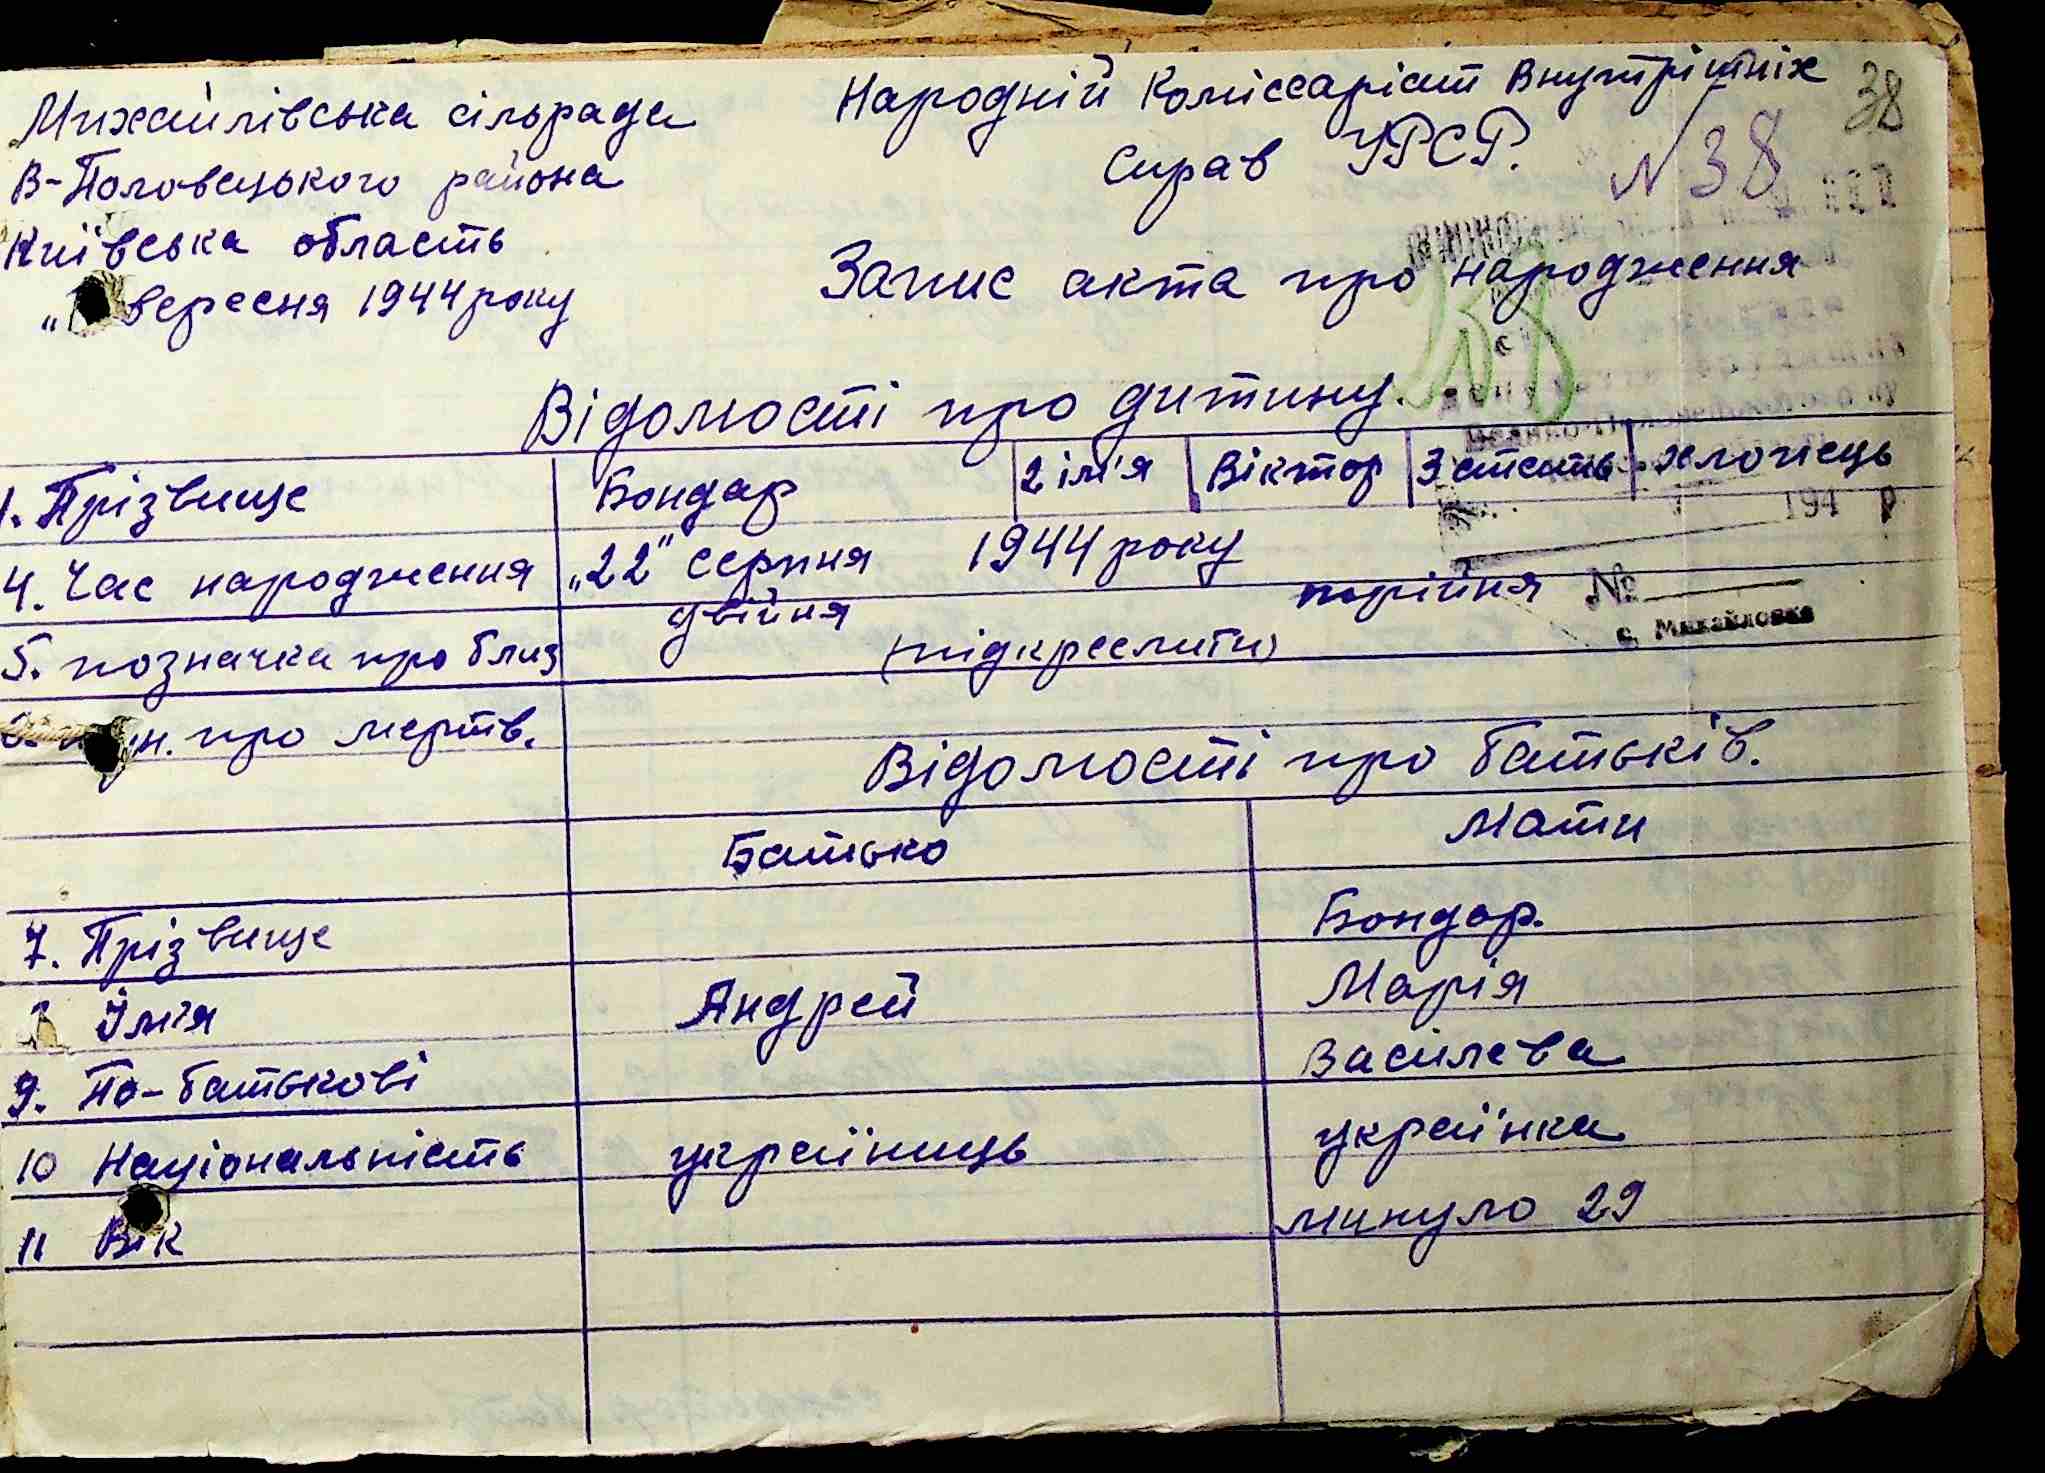 Михайлівська сільрада
В-Половецького района
Київська область
вересня 1944 року
Народній Коміссаріат Внутрішніх
Справ УРСР.
38
N 38
Запис акта про народження
158
Відомості про дитину.
1. Прізвище Бондар 2 ім'я Віктор 3 стать хлопчець
4. Час народження „22" серпня 1944 року
194 р
5. позначка про близ двійня (підкреслити) трійня
№
с. Михайловка
про мертв.
Відомості про батьків.
Батько Мати
7. Прізвище Бондар.
Ім'я Андрей Марія
9. По-батькові Василева
10 Національність українець українка
11 Вік минуло 29